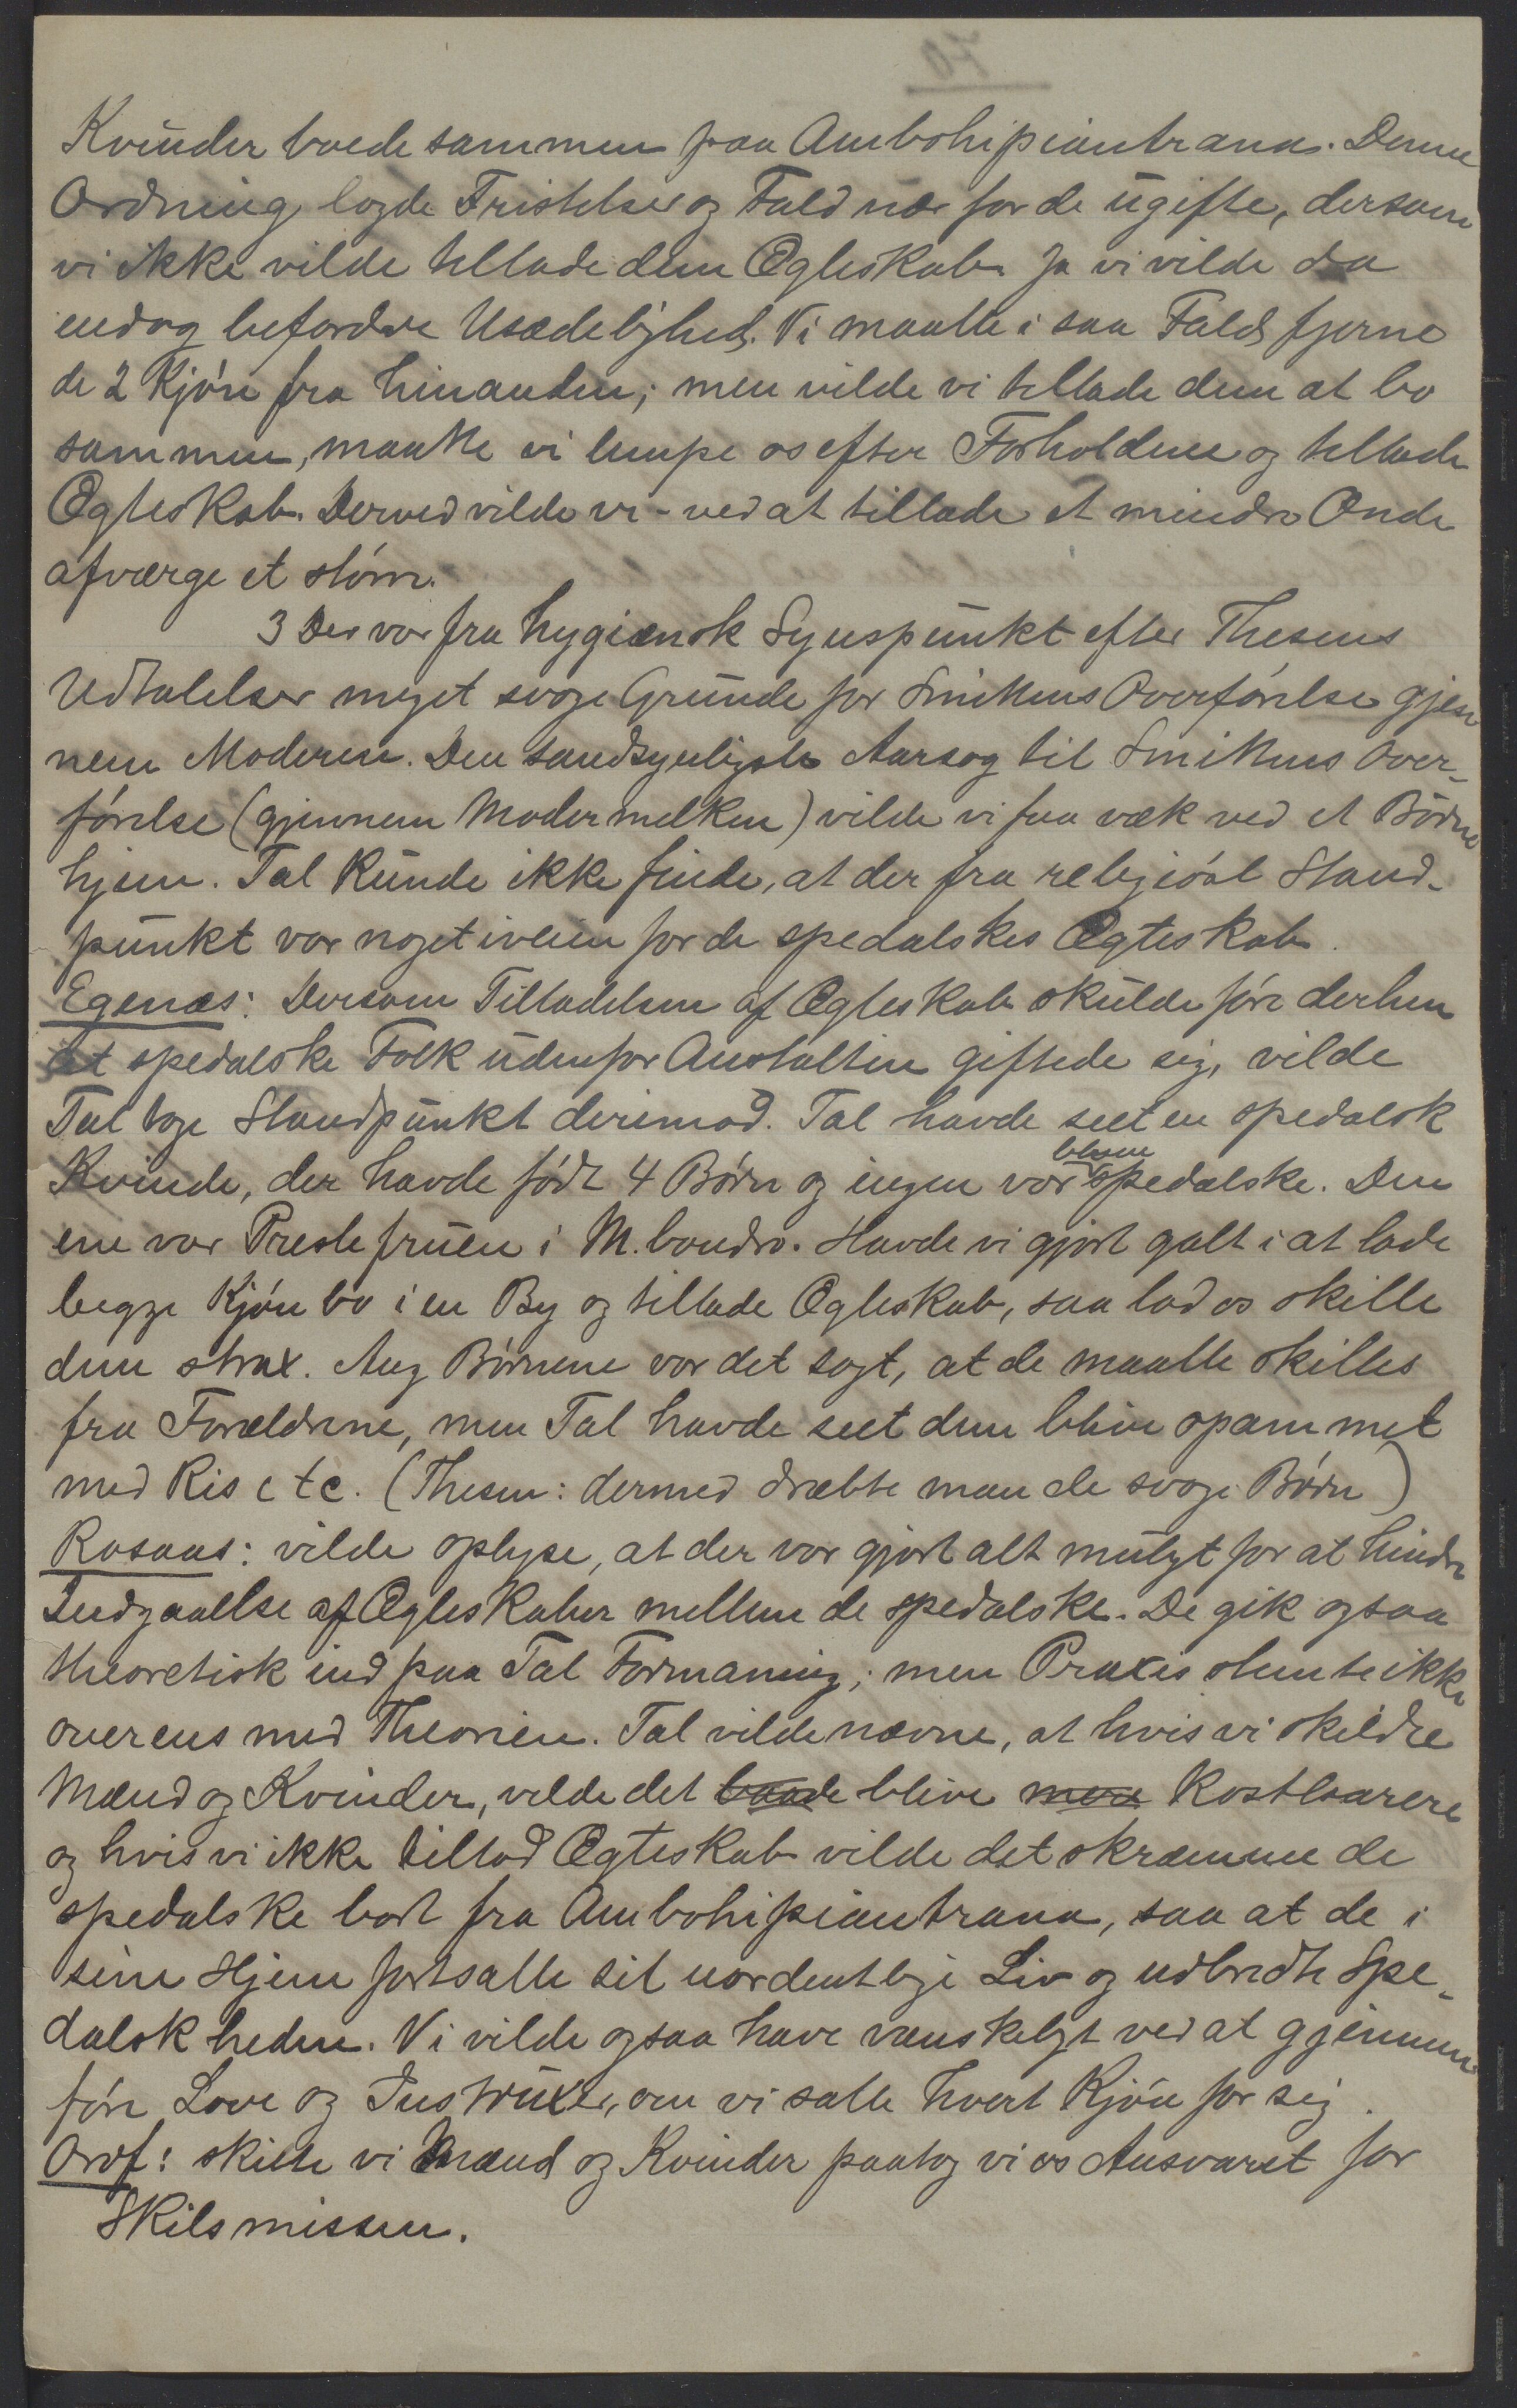 Kvinder boede sammen paa Ambohipiantrana. Denne
Ordning lagde Fristelser og Fald nær for de ugifte, dersom
vi ikke vilde tillade dem Ægteskab. Ja vi vilde da
endog befordre Usædelighed. Vi maatte i saa Fald fjerne
de 2 Kjøn fra hinanden; men vilde vi tillade dem at bo
sammen, maatte vi lempe os efter Forholdene og tillade
Ægteskab. Derved vilde vi - ved at tillade et mindre Onde
afværge et større.
3 Der var fra hygiænisk Synspunkt efter Thesens
Udtalelser meget svage Grunde for Smittens Overførelse gjen
nem Moderen. Den sandsynligste Aarsag til Smittens Over-
førelse (gjennem Modermelken) vilde vi faa væk ved et Børne
hjem. Tal kunde ikke finde, at der fra religiøst Stand-
punkt var noget iveien for de spedalskes Ægteskab.
Egenæs: Dersom Tilladelsen af Ægteskab skulde føre derhen
at spedalske Folk udenfor Anstalten giftede sig, vilde
Tal tage Standpunkt derimod. Tal havde seet en spedalsk
Kvinde, der havde født 4 Børn og ingen var blevne spedalske. Den
ene var Prestefruen i M.bondro. Havde vi gjort galt i at lade
begge Kjøn bo i en By og tillade Ægteskab, saa lad os skille
dem strax. Ang Børnene var det sagt, at de maatte skilles
fra Forældrene, men Tal havde seet dem blive opammet
med Ris etc. (Thesen: dermed dræbte man de svage Børn)
Rosaas: vilde oplyse, at der var gjort alt muligt for at hindre
Indgaaelse af Ægteskaber mellem de spedalske. De gik ogsaa
theoretisk ind paa Tal Formaning; men Praxis stemte ikke
overens med Theorien. Tal vilde nævne, at hvis vi skildte
Mænd og Kvinder, vilde det baade blive mere Kostbarere
og hvis vi ikke tillod Ægteskab vilde det skræmme de
spedalske bort fra Ambohipiantrana, saa at de i
sine Hjem fortsatte sit uordentlige Liv og udbredte Spe-
dalskheden. Vi vilde ogsaa have vanskeligt ved at gjennem
føre Love og Instruxer, om vi satte hvert Kjøn for sig.
Ordf: skilte vi Mænd og Kvinder paatog vi os Ansvaret for
Skilsmissen.